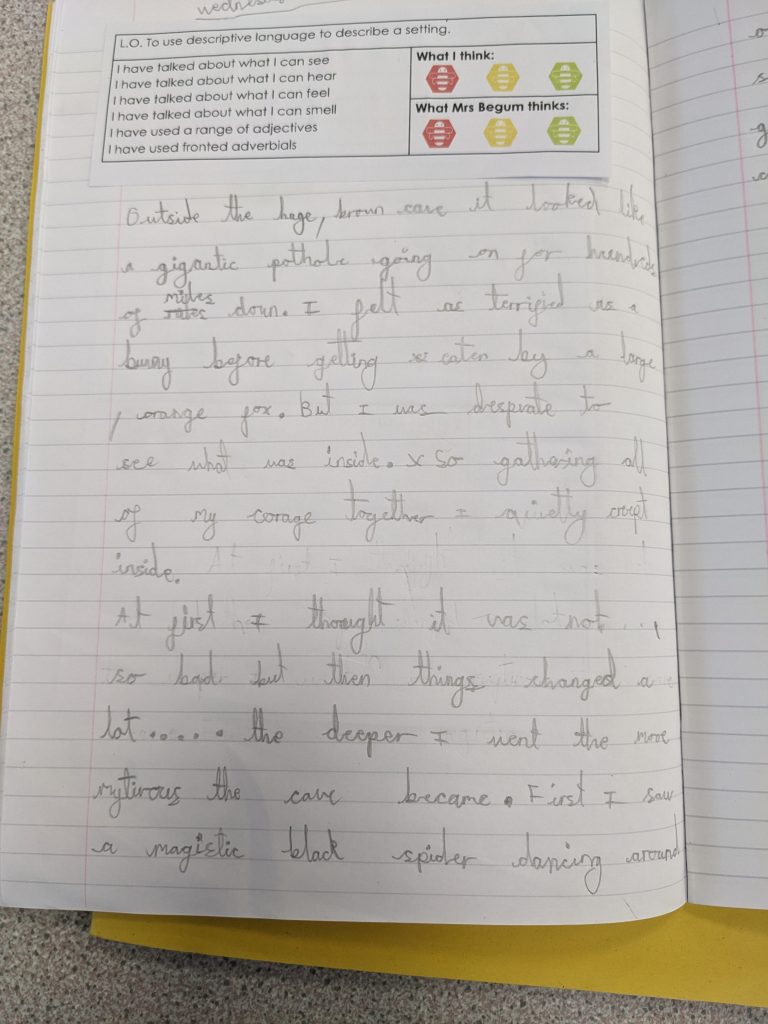 wednesd
L.O. To use descriptive language to describe a setting.
I have talked about what I can see
I have talked about what I can hear
I have talked about what I can feel
I have talked about what I can smell
I have used a range of adjectives
I have used fronted adverbials
What I think:
What Mrs Begum thinks:
Outside the huge, brown cave it looked like
a gigantic pothole going on for hundreds
of miles down. I felt as terrified as a
bunny before getting eaten by a large
, orange fox. But I was desprate to
see what was inside. So gathering all
of my corage together I quietly creept
inside.
At first I thought it was not
so bad but then things changed a
lot..... the deeper I went the more
mytirous the cave became. First I saw
a magistic black spider dancing around